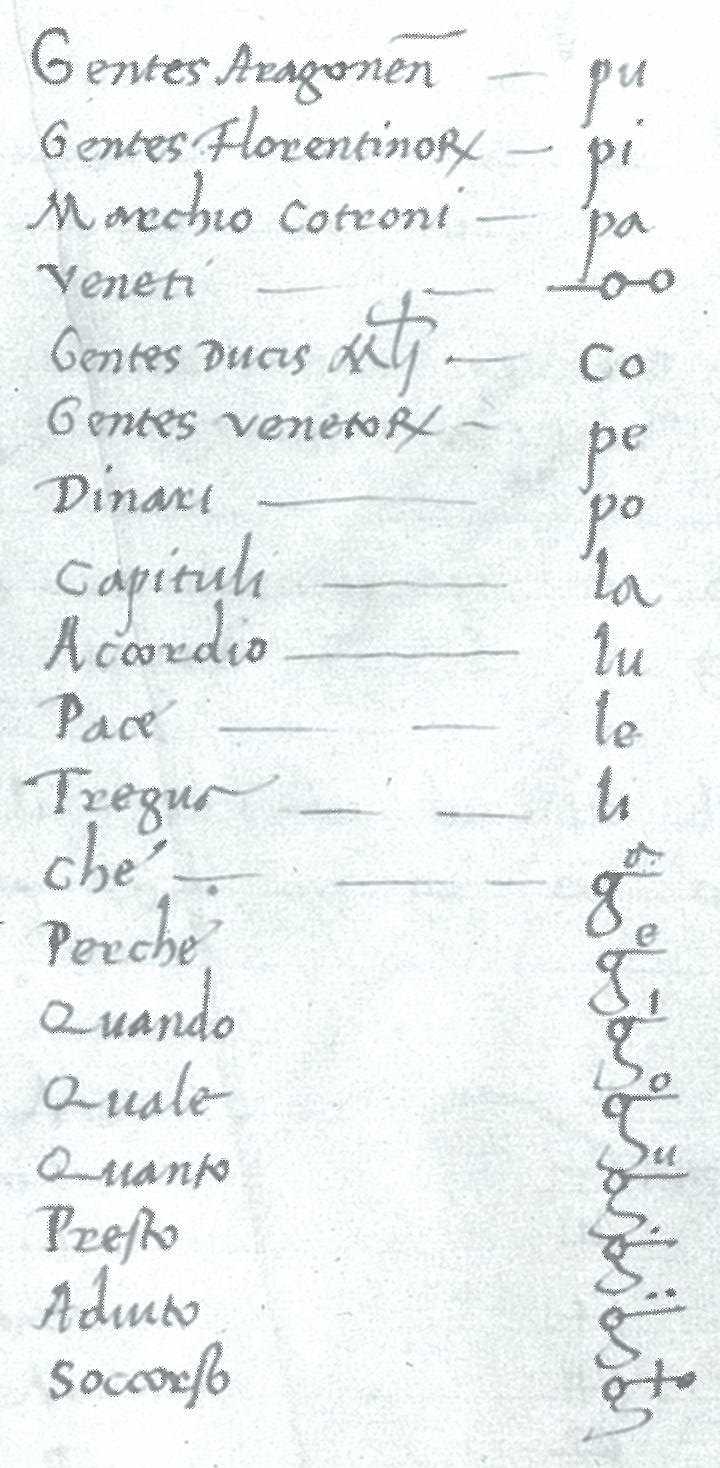 Gentes Aragonen̄ — pu
Gentes Florentinoꝝ — pi
Marchio Cotroni — pa
Veneti — —o-o
Gentes Ducis — co
Gentes venetoꝝ - pe
Dinari — po
Capituli — la
Acordio — lu
Pace — — le
Tregua — — li
Che — — gᵃ
Perche gᵉ
Quando gⁱ
Quale gᵒ
Quanto gᵘ
Preſto
Adiuto
Soccorſo